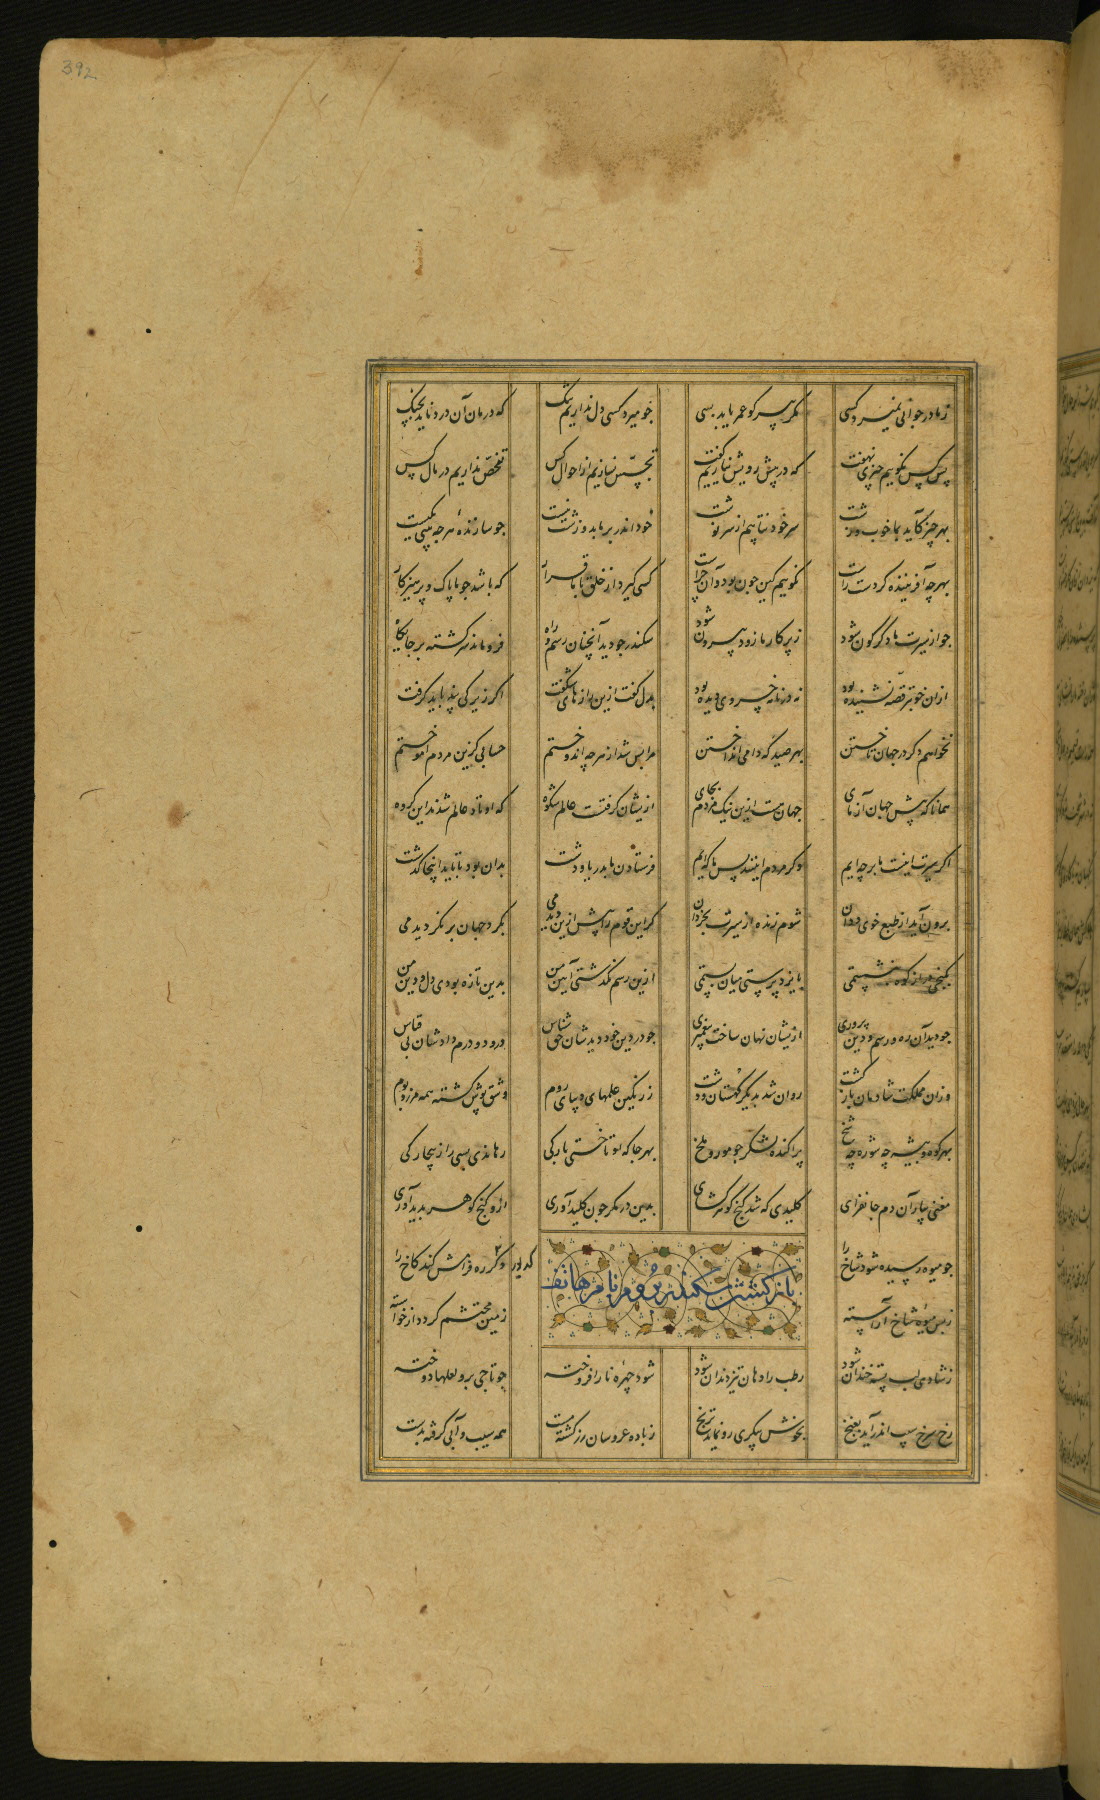 392
ز ما در جوانی نمیرد کسی مگر پیر کو عمر یابد بسی چو میرد کسی دل نداریم تنگ که درمان آن درد ناید بچنگ
پس کس نگوییم چیزی نهفت که در پیش رویش نیاریم گفت تجسس نسازیم از احوال کس تفحص نداریم در مال کس
بهر چیز کآید بما خوب و زشت سر خود نتابیم از سرنوشت خود اندر بر ما بد و زشت نیست چو سازنده هر چه بینی یکیست
بهر چه آفریننده کردست راست نگوییم کین چون بود وان چراست کسی گیرد از خلق با ما قرار که باشد چو ما پاک و پرهیزکار
چو از سیرت ما دگرگون شود ز پرکار ما زود بیرون شود سکندر چو دید آنچنان رسم و راه فرو ماند سرگشته بر جایگاه
ازان خوبتر قصه نشنیده بود نه در نامه خسروی دیده بود بدل گفت ازین رازهای شگفت اگر زیرکی پند باید گرفت
نخواهم دگر در جهان تاختن بهر صیدگه دامی انداختن مرا بس شد از هر چه اندوختم حسابی کزین مردم آموختم
همانا که پیش جهان آزمای جهان هست ازین نیک مردم بجای ازیشان گرفتست عالم شکوه که اوتاد عالم شدند این گروه
اگر سیرت اینست ما بر چه‌ایم وگر مردم اینند پس ما که‌ایم فرستادن ما بدریا و دشت بدان بود تا باید اینجا گذشت
برون آید از طبع خوی ددان شوم زنده از سیرت بخردان گر این قوم را پیش ازین دیدمی بگرد جهان بر نگردیدمی
بکنجی در از کوه بنشستمی بایزد پرستی میان بستمی ازین رسم نگذشتی آیین من بدین تازه بودی دل و دین من
چو دید آن ره و رسم و دین پروری ازیشان نهان ساخت پیغمبری چو در دین خود دیدشان حق شناس درود و درم دادشان بی قیاس
وزان مملکت شادمان بازگشت روان شد بدیگر کهستان و دشت ز رنگین علمهای دیبای روم وشق پوش گشته همه مرز و بوم
بهر کوه و بیشه چه شوره چه شخ پراکنده لشکر چو مور و ملخ بهر جا که او تاختی بارگی رهاندی بسی را ز بیچارگی
مغنی بیار آن دم جانفزای کلیدی که شد گنج گوهر گشای بدین در مگر چون کلید آوری ازو گنج گوهر پدید آوری
بازگشتن سکندر بروم از نامه هاتف
چو میوه رسیده شود شاخ را که دگر ره فرامش کند کاخ را
ز بس میوه شاخ آراسته زمین محتشم گردد از خواسته
ز شادی لب پسته خندان شود رطب را دهان تیز دندان شود شود چهره نار افروخته چو تاجی برو لعلها دوخته
رخ سرخ سیب اندر آید بغنج بخوش پیکری رو نماید ترنج ز باده عروسان رز گشته مست همه سیب و آبی گرفته بدست